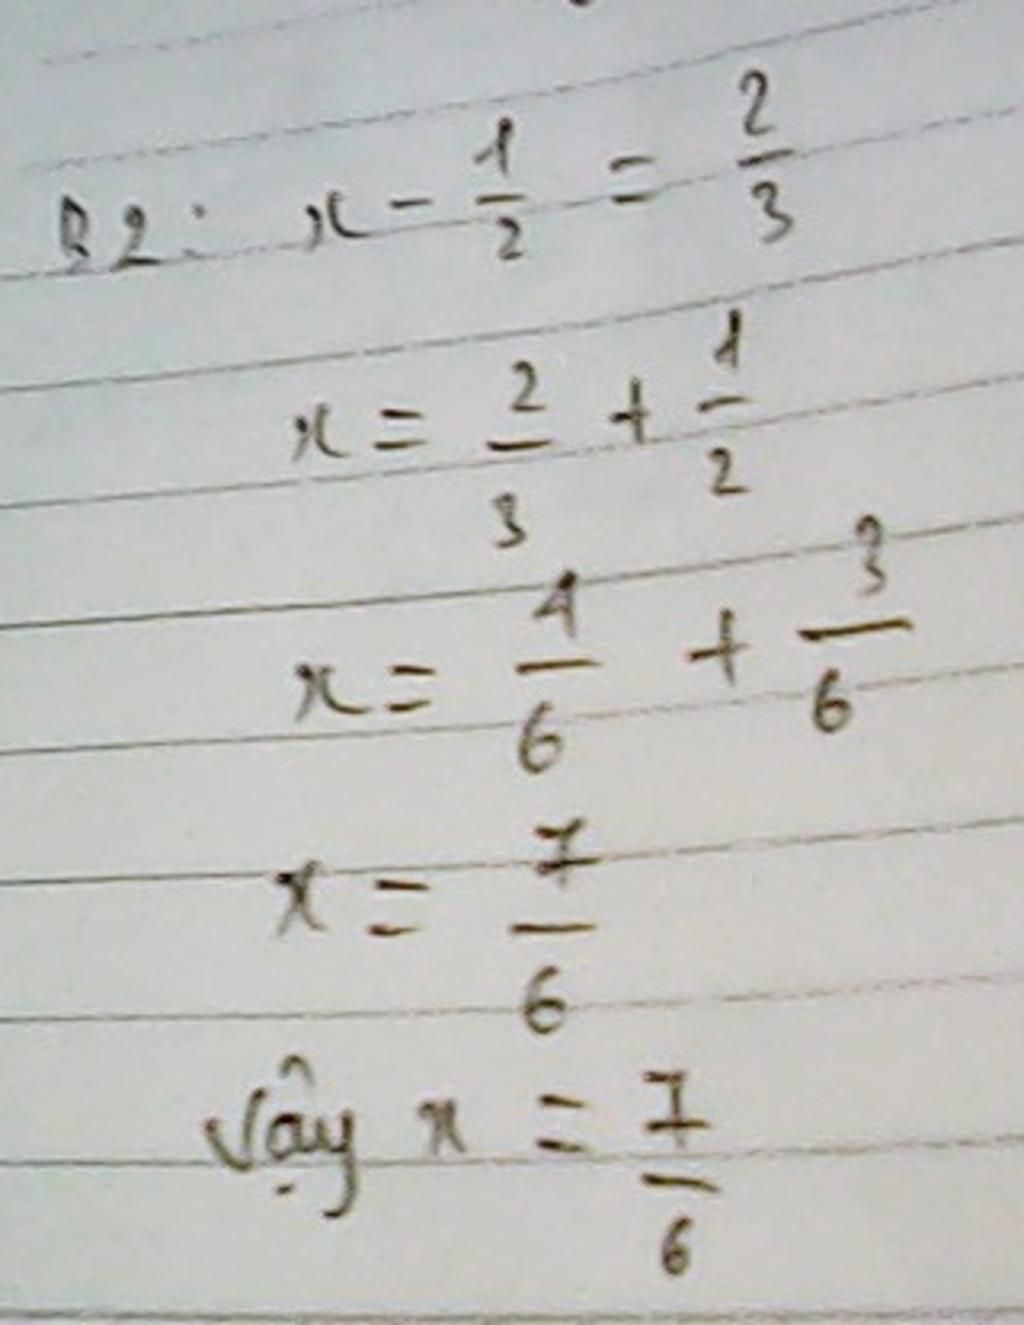 B2: x - 1/2 = 2/3
x = 2/3 + 1/2
x = 4/6 + 3/6
x = 7/6
Vậy x = 7/6